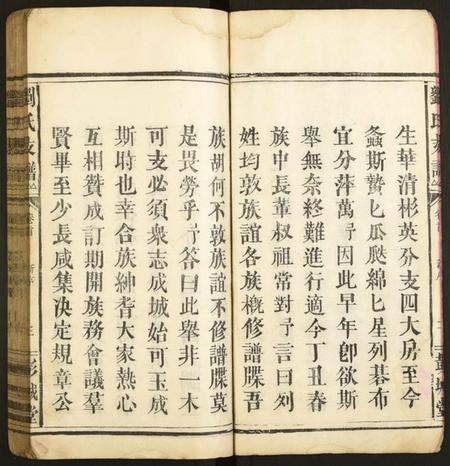 生華清彬英分支四大房至今
螽斯蟄匕瓜瓞綿匕星列棊布
宜分萍萬予因此早年卽欲斯
舉無奈終難進行適今丁丑春
族中長輩叔祖常對予言曰刘
姓均敦族誼各族概修譜牒吾
族胡何不敦族誼不修譜牒莫
是畏勞乎予答曰此舉非一木
可支必須衆志成城始可玉成
斯時也幸合族紳耆大家熱心
互相贊成訂期開族務會議羣
賢畢至少長咸集決定規章公
劉氏支譜
卷首
三
彭城堂